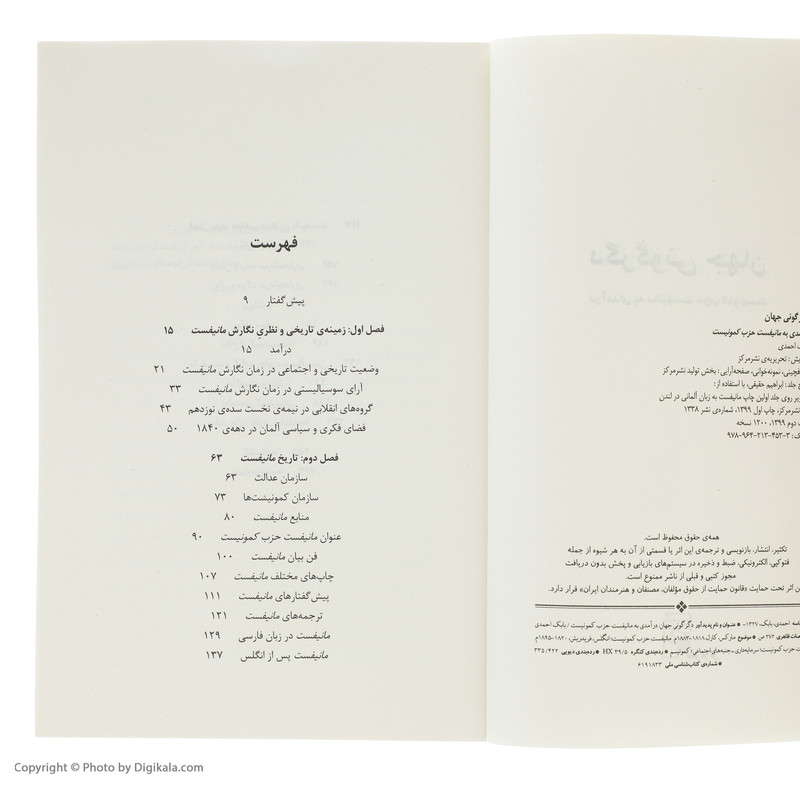 گونی جهان
مدی به مانیفست حزب کمونیست
احمدی
یش: تحریریه‌ی نشرمرکز
فچینی، نمونه‌خوانی، صفحه‌آرایی: بخش تولید نشرمرکز
ح جلد: ابراهیم حقیقی، با استفاده از:
یر روی جلد اولین چاپ مانیفست به زبان آلمانی در لندن
نشرمرکز، چاپ اول ۱۳۹۹، شماره‌ی نشر ۱۳۳۸
دوم ۱۳۹۹، ۱۲۰۰ نسخه
ک: ۳-۴۵۳-۲۱۳-۹۶۴-۹۷۸
همه‌ی حقوق محفوظ است.
تکثیر، انتشار، بازنویسی و ترجمه‌ی این اثر یا قسمتی از آن به هر شیوه از جمله
فتوکپی، الکترونیکی، ضبط و ذخیره در سیستم‌های بازیابی و پخش بدون دریافت
مجوز کتبی و قبلی از ناشر ممنوع است.
ن اثر تحت حمایت «قانون حمایت از حقوق مؤلفان، مصنفان و هنرمندان ایران» قرار دارد.
نامه احمدی، بابک، ۱۳۲۷- ● عنوان و نام پدیدآور دگرگونی جهان درآمدی به مانیفست حزب کمونیست / بابک احمدی
صات ظاهری ۲۷۲ ص ● موضوع مارکس، کارل ۱۸۱۸-۱۸۸۳م. مانیفست حزب کمونیست؛ انگلس، فریدریش، ۱۸۲۰-۱۸۹۵م
ت حزب کمونیست؛ سرمایه‌داری ــ جنبه‌های اجتماعی؛ کمونیسم ● رده‌بندی کنگره HX ۳۹/۵ ● رده‌بندی دیویی ۳۳۵/۴۲۲
● شماره‌ی کتاب‌شناسی ملی ۶۱۹۱۸۳۳
فهرست
پیش‌گفتار ۹
فصل اول: زمینه‌ی تاریخی و نظریِ نگارش مانیفست ۱۵
درآمد ۱۵
وضعیت تاریخی و اجتماعی در زمان نگارش مانیفست ۲۱
آرای سوسیالیستی در زمان نگارش مانیفست ۳۳
گروه‌های انقلابی در نیمه‌ی نخست سده‌ی نوزدهم ۴۳
فضای فکری و سیاسی آلمان در دهه‌ی ۱۸۴۰ ۵۰
فصل دوم: تاریخ مانیفست ۶۳
سازمان عدالت ۶۳
سازمان کمونیست‌ها ۷۳
منابع مانیفست ۸۰
عنوان مانیفست حزب کمونیست ۹۰
فن بیان مانیفست ۱۰۰
چاپ‌های مختلف مانیفست ۱۰۷
پیش‌گفتارهای مانیفست ۱۱۱
ترجمه‌های مانیفست ۱۲۱
مانیفست در زبان فارسی ۱۲۹
مانیفست پس از انگلس ۱۳۷
Copyright © Photo by Digikala.com